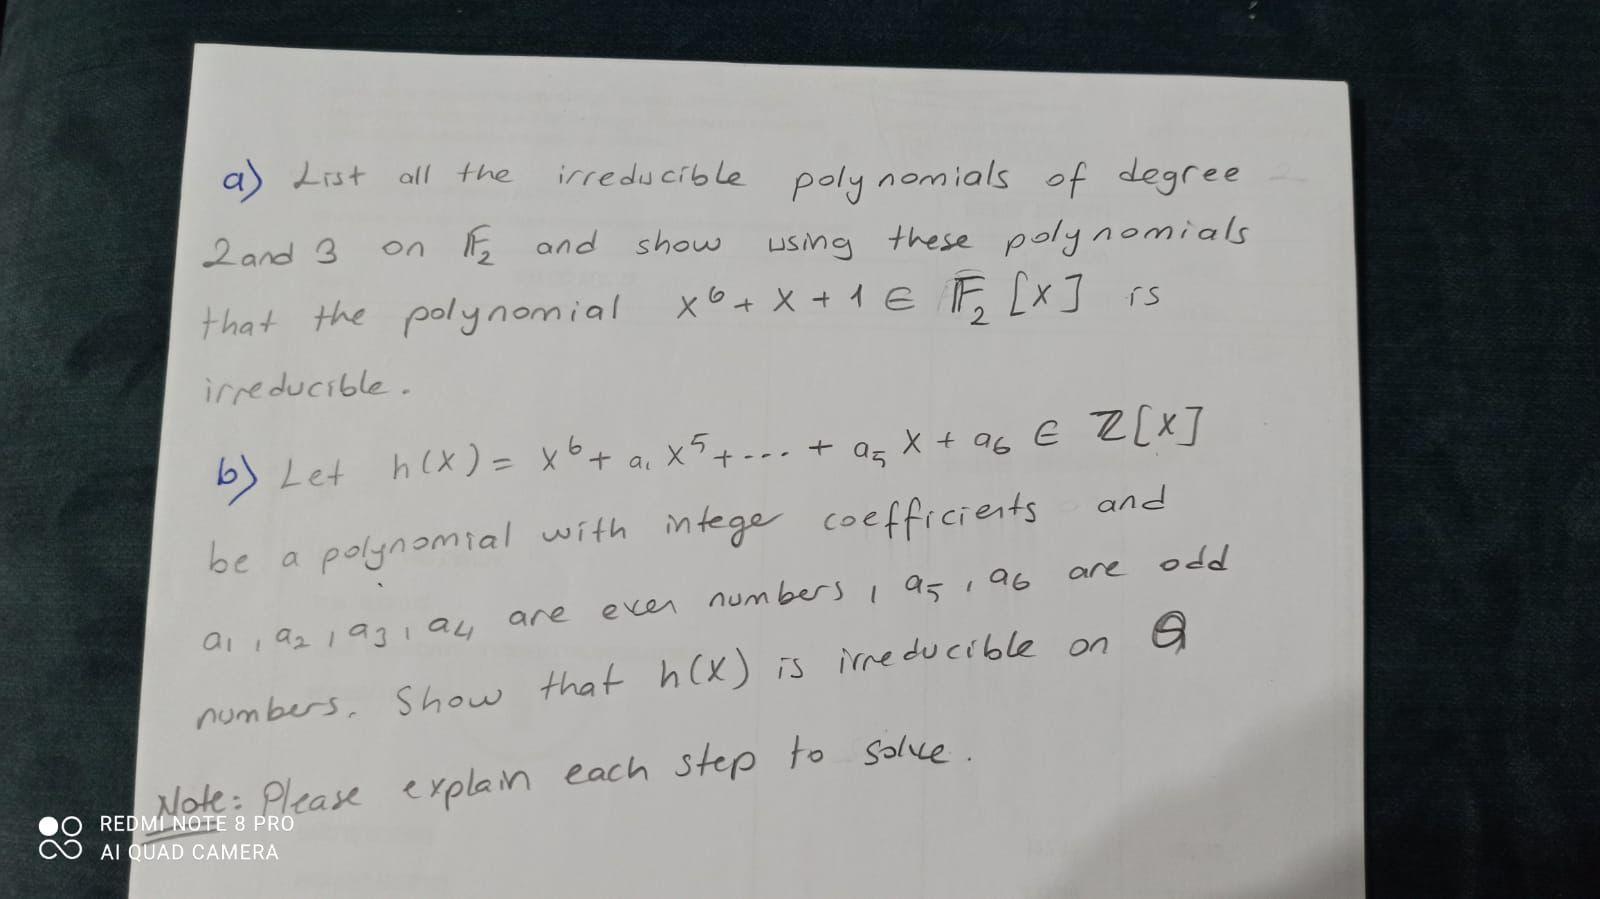 a) List all the irreducible polynomials of degree
2 and 3 on 𝔽₂ and show using these polynomials
that the polynomial x⁶ + x + 1 ∈ 𝔽₂ [x] is
irreducible.
b) Let h(x) = x⁶ + a₁ x⁵ + --- + a₅ x + a₆ ∈ ℤ[x]
be a polynomial with integer coefficients and
a₁, a₂, a₃, a₄ are even numbers, a₅, a₆ are odd
numbers. Show that h(x) is irreducible on ℚ
Note: Please explain each step to solve.
REDMI NOTE 8 PRO
AI QUAD CAMERA